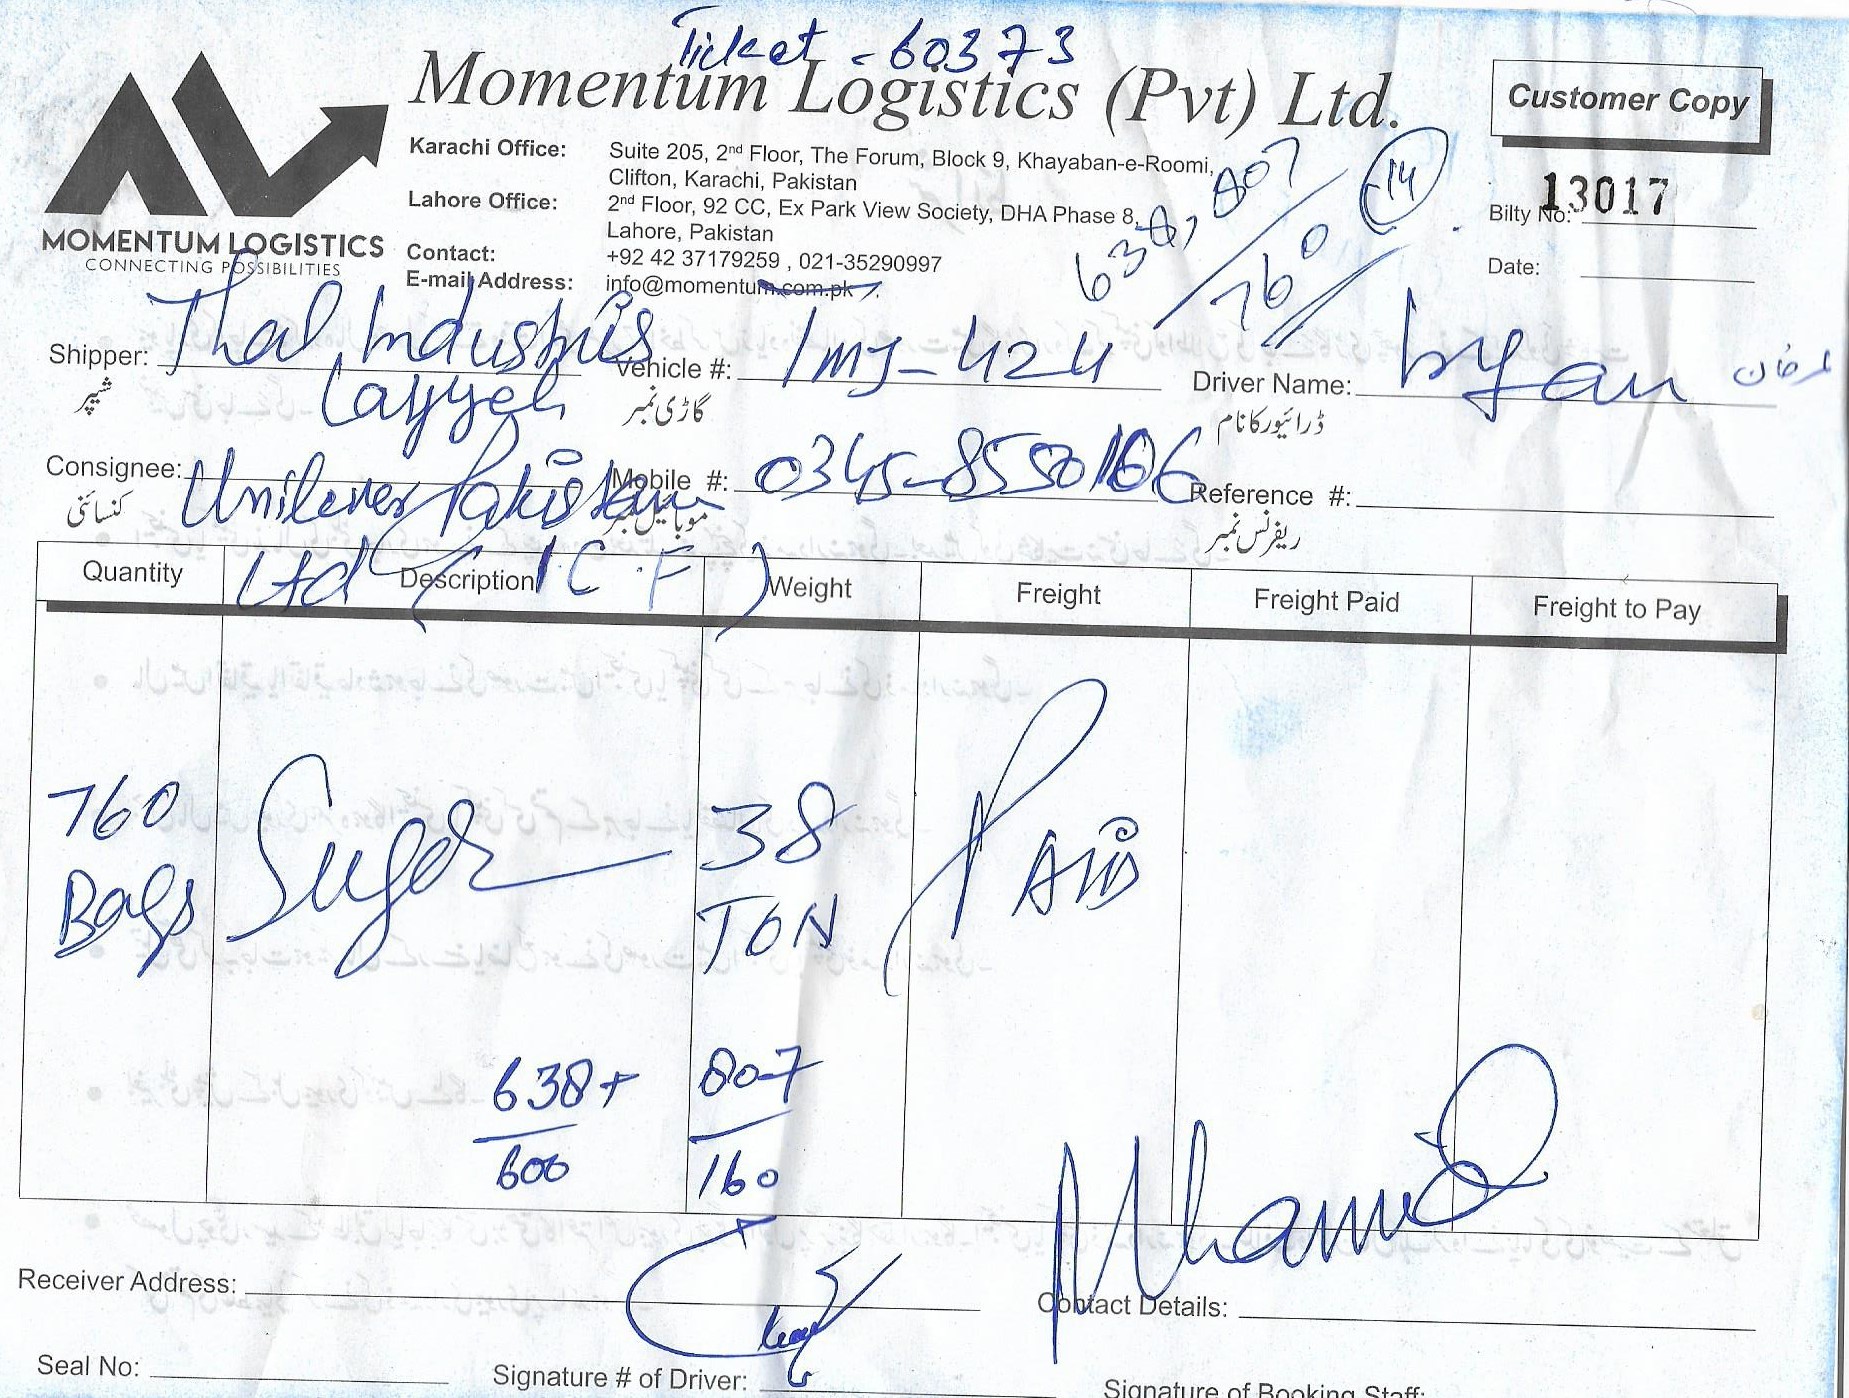 Ticket - 60373
Momentum Logistics (Pvt) Ltd.
Customer Copy
MOMENTUM LOGISTICS
CONNECTING POSSIBILITIES
Karachi Office: Suite 205, 2nd Floor, The Forum, Block 9, Khayaban-e-Roomi,
Clifton, Karachi, Pakistan
Lahore Office: 2nd Floor, 92 CC, Ex Park View Society, DHA Phase 8,
Lahore, Pakistan
Contact: +92 42 37179259 , 021-35290997
E-mail Address: info@momentum.com.pk
638, 807
760
14
Bilty No: 13017
Date:
Shipper: Thal Industries
Layyah
شیپر
Vehicle #: 424
گاڑی نمبر
Driver Name:
ڈرائیور کا نام
Consignee: Unilever Pakistan
Ltd (ICF)
کنسائنی
Mobile #:
موبائیل نمبر
Reference #:
ریفرنس نمبر
Quantity Description Weight Freight Freight Paid Freight to Pay
760 Sugar 38 PAID
Bags TON
638+ 807
600 160
Receiver Address: Contact Details:
Seal No: Signature # of Driver: Signature of Booking Staff: